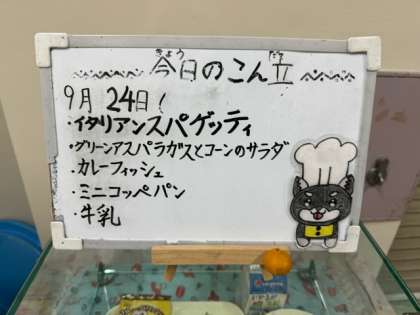 きょう だて
今日のこん立
9月 24日!
・イタリアンスパゲッティ
・グリーンアスパラガスとコーンのサラダ
・カレーフィッシュ
・ミニコッペパン
・牛乳